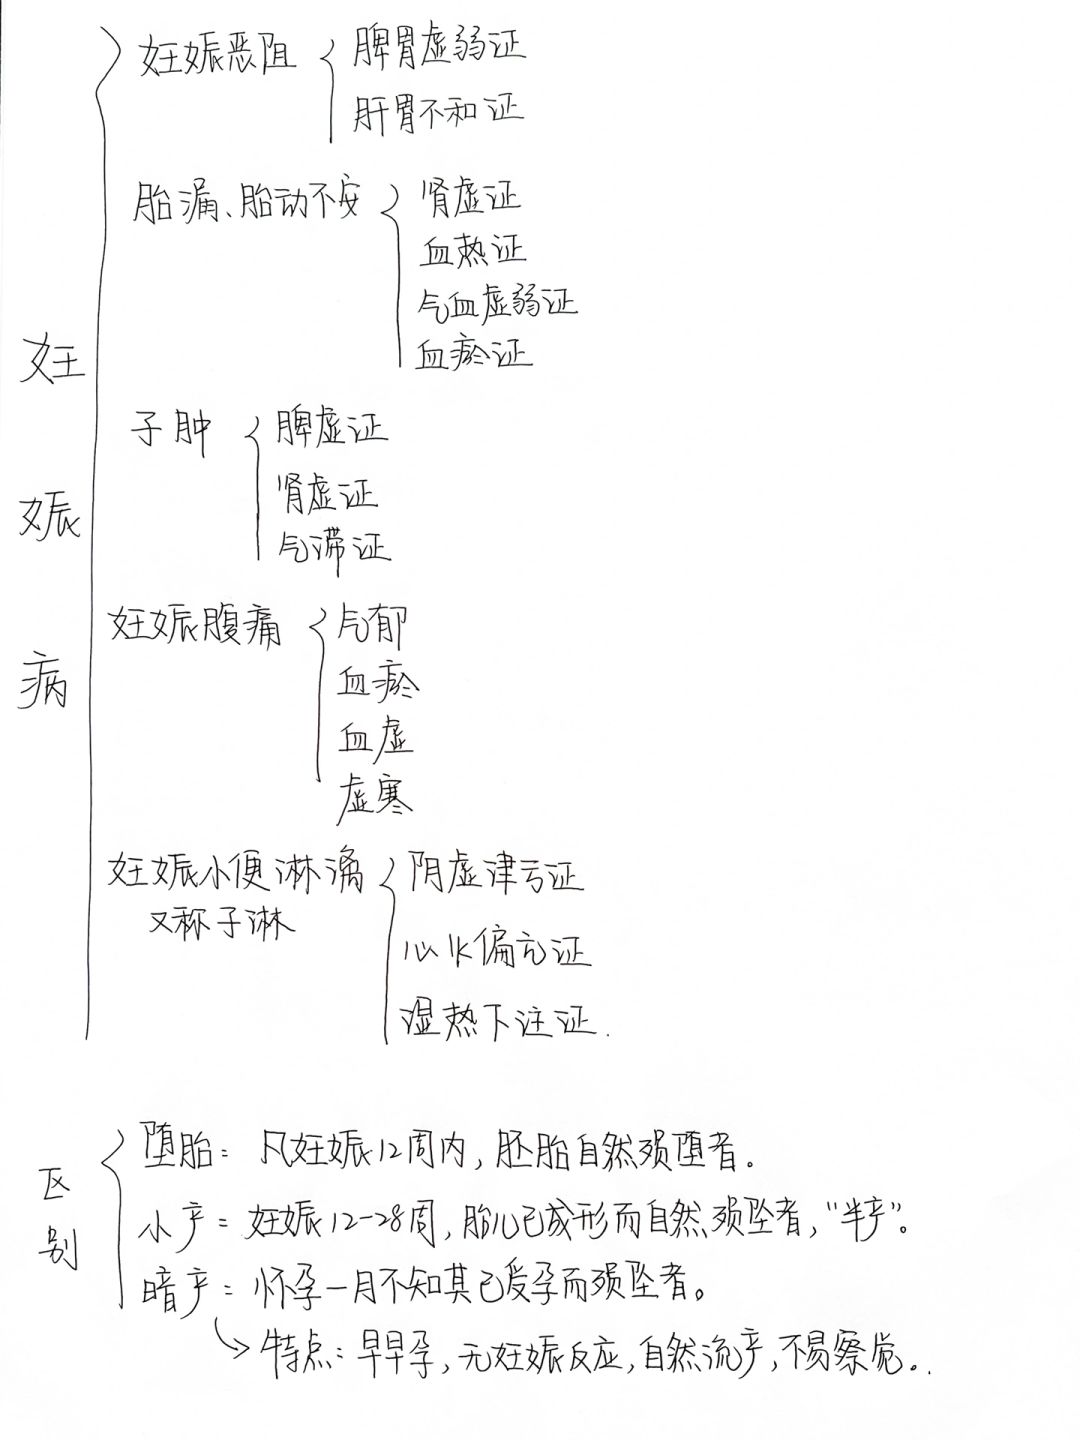 妊娠病
妊娠恶阻
脾胃虚弱证
肝胃不和证
胎漏、胎动不安
肾虚证
血热证
气血虚弱证
血瘀证
子肿
脾虚证
肾虚证
气滞证
妊娠腹痛
气郁
血瘀
血虚
虚寒
妊娠小便淋漓
又称子淋
阴虚津亏证
心火偏亢证
湿热下注证.
区别
堕胎: 凡妊娠12周内,胚胎自然殒堕者。
小产: 妊娠12-28周,胎儿已成形而自然殒坠者,"半产"。
暗产: 怀孕一月不知其已受孕而殒坠者。
特点: 早早孕,无妊娠反应,自然流产,不易察觉。.